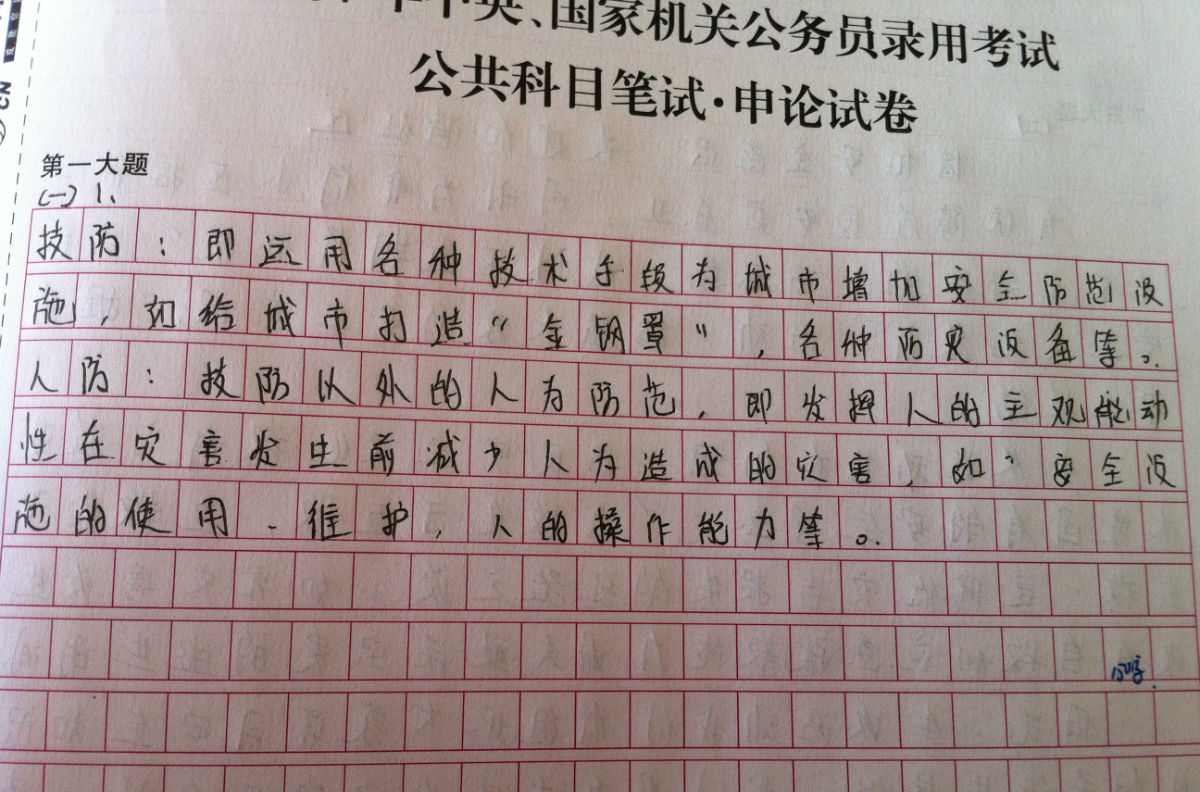 中央、国家机关公务员录用考试
公共科目笔试·申论试卷
第一大题
(一) 1、
技防：即运用各种技术手段为城市增加安全防范设
施，如给城市打造“金钢罩”，各种防灾设备等。
人防：技防以外的人为防范，即发挥人的主观能动
性在灾害发生前减少人为造成的灾害，如：安全设
施的使用、维护，人的操作能力等。
150字